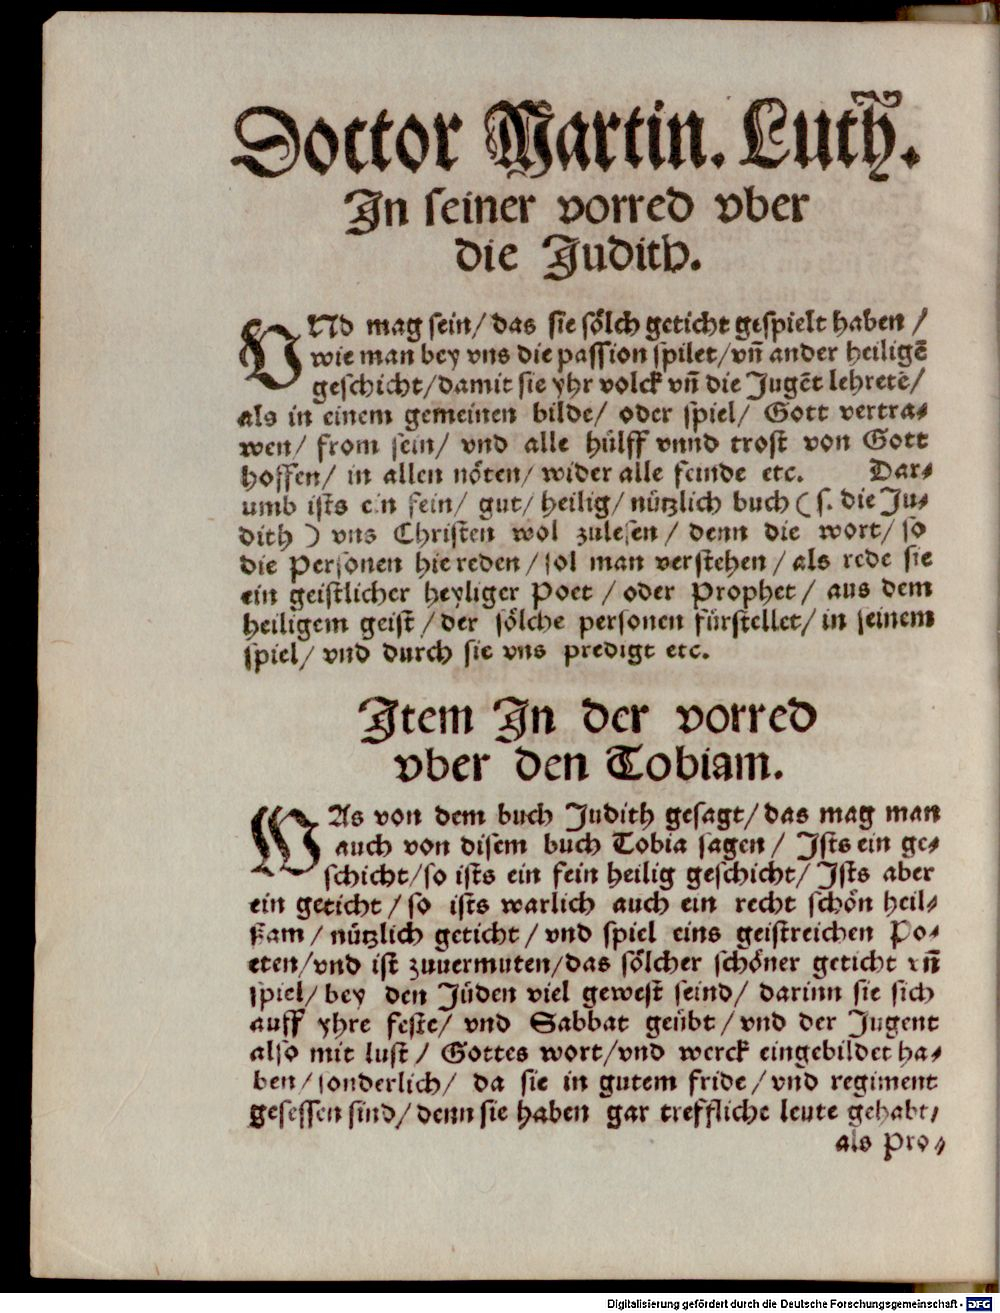 Doctor Martin. Luth̃.
In seiner vorred vber
die Judith.
VNd mag sein/ das sie sölch geticht gespielt haben /
wie man bey vns die passion spilet/ vñ ander heiligẽ
geschicht/ damit sie yhr volck vñ die Jugẽt lehretẽ/
als in einem gemeinen bilde/ oder spiel/ Gott vertra⸗
wen/ from sein/ vnd alle hülff vnnd trost von Gott
hoffen/ in allen nöten/ wider alle feinde etc. Dar⸗
umb ists ein fein/ gut/ heilig/ nützlich buch ( s. die Ju⸗
dith ) vns Christen wol zulesen / denn die wort/ so
die Personen hie reden/ sol man verstehen / als rede sie
ein geistlicher heyliger Poet / oder Prophet / aus dem
heiligem geist / der sölche personen fürstellet/ in seinem
spiel/ vnd durch sie vns predigt etc.
Item In der vorred
vber den Tobiam.
WAs von dem buch Judith gesagt/ das mag man
auch von disem buch Tobia sagen / Ists ein ge⸗
schicht/ so ists ein fein heilig geschicht/ Ists aber
ein geticht / so ists warlich auch ein recht schön heil⸗
sam / nützlich geticht / vnd spiel eins geistreichen Po⸗
eten/ vnd ist zuuermuten/ das sölcher schöner geticht vñ
spiel/ bey den Jüden viel gewest seind/ darinn sie sich
auff yhre feste/ vnd Sabbat geübt / vnd der Jugent
also mit lust / Gottes wort/ vnd werck eingebildet ha⸗
ben/ sonderlich/ da sie in gutem fride / vnd regiment
gesessen sind/ denn sie haben gar treffliche leute gehabt/
als Pro⸗
Digitalisierung gefördert durch die Deutsche Forschungsgemeinschaft - DFG